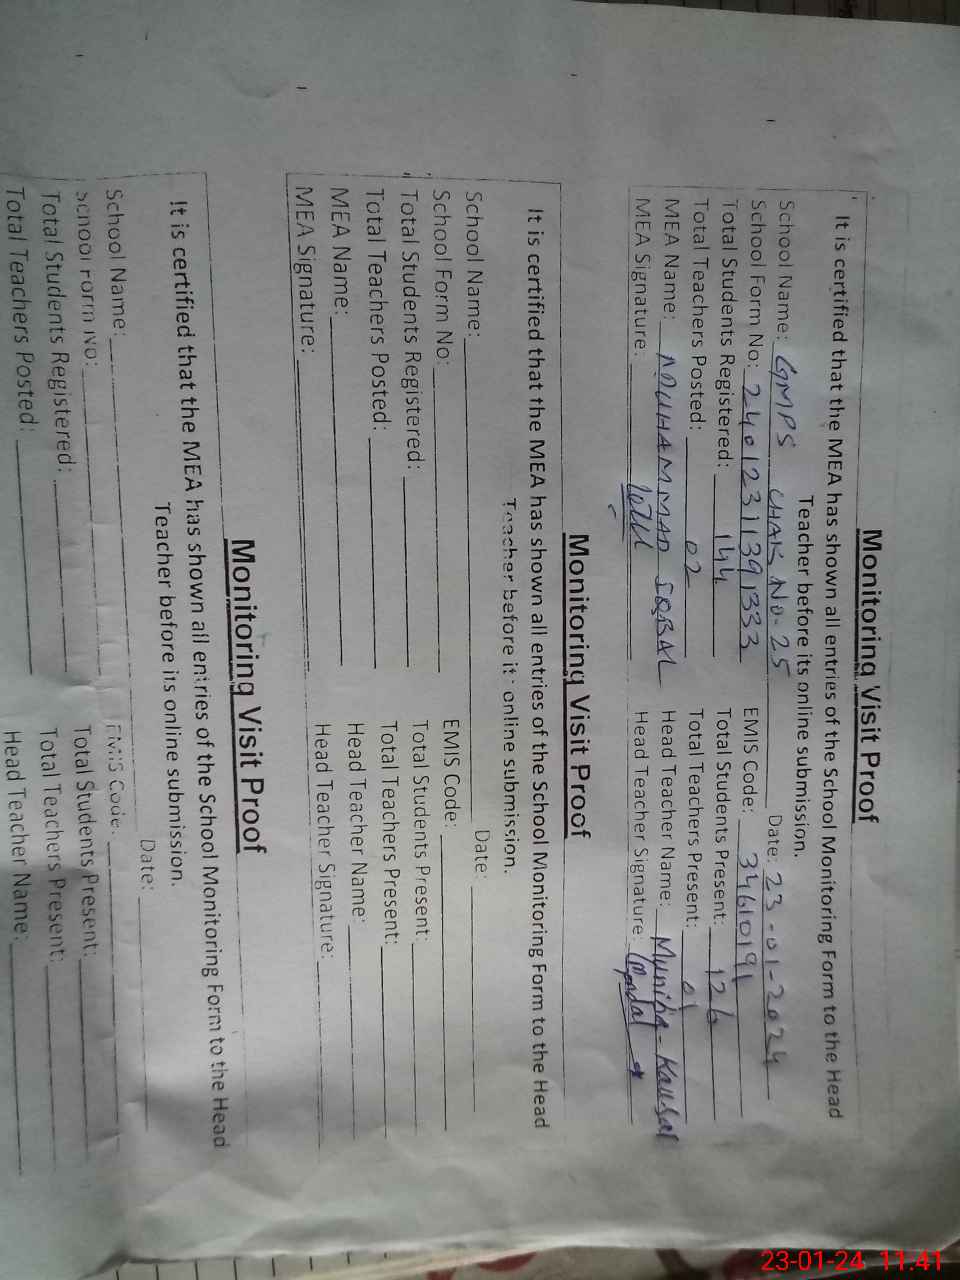 Monitoring Visit Proof
It is certified that the MEA has shown all entries of the School Monitoring Form to the Head
Teacher before its online submission.
School Name: GMPS CHAK No-25 Date: 23-01-2024
School Form No: 24012311391333 EMIS Code: 34610191
Total Students Registered: 144 Total Students Present: 126
Total Teachers Posted: 02 Total Teachers Present: 01
MEA Name: MUHAMMAD IQBAL Head Teacher Name: Muniba-Kausar
MEA Signature: Head Teacher Signature:
Monitoring Visit Proof
It is certified that the MEA has shown all entries of the School Monitoring Form to the Head
Teacher before it online submission.
School Name: Date:
School Form No: EMIS Code:
Total Students Registered: Total Students Present:
Total Teachers Posted: Total Teachers Present:
MEA Name: Head Teacher Name:
MEA Signature: Head Teacher Signature:
Monitoring Visit Proof
It is certified that the MEA has shown all entries of the School Monitoring Form to the Head
Teacher before its online submission.
School Name: Date:
School Form No: EMIS Code:
Total Students Registered: Total Students Present:
Total Teachers Posted: Total Teachers Present:
Head Teacher Name:
23-01-24 11:41